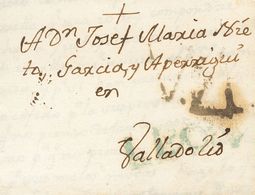 A Dn Josef Maria Nie
to, Garcia, y Aperregui
en
Valladolid